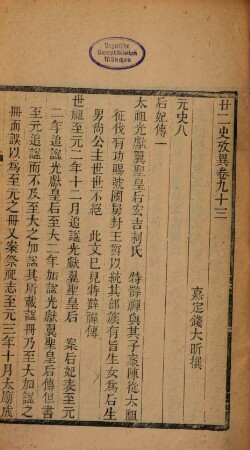 Bayerische
Staatsbibliothek
München
廿二史攷異卷九十三
嘉定錢大昕撰
元史八
后妃傳一
太祖光獻翼聖皇后宏吉剌氏 特薛禪與其子案陳從太祖
征伐有功賜號國舅封王爵以統其部族有旨生女為后生
男尚公主世世不絕 此文已見特薛禪傳
世祖至元二年十二月追謚光獻翼聖皇后 案后妃表至元
二年追謚光獻皇后至大二年加謚光獻翼聖皇后傳但書
至元追謚而不及至大之加謚其所載謚冊乃至大加謚之
冊而誤以為至元之冊又案祭祀志至元三年十月太廟成